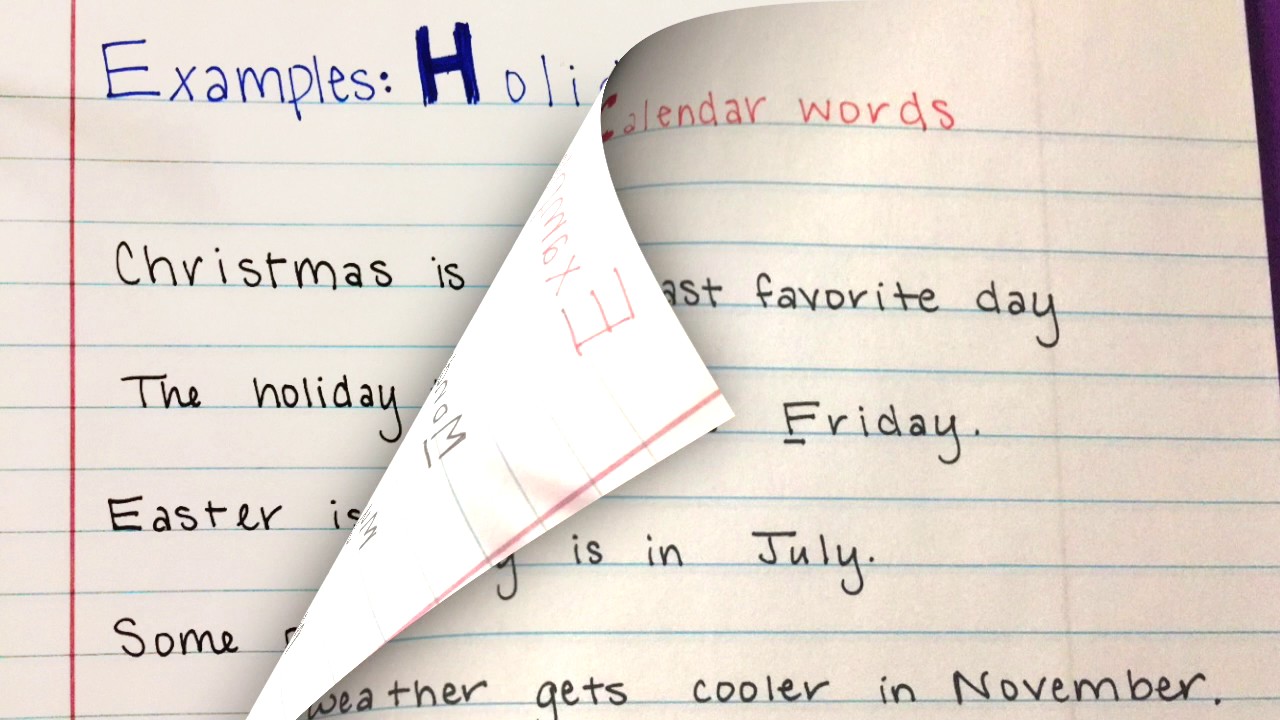 Examples: Holi
Calendar words
Christmas is
favorite day
The holiday
Friday.
Easter is
is in July.
Some
weather gets cooler in November.